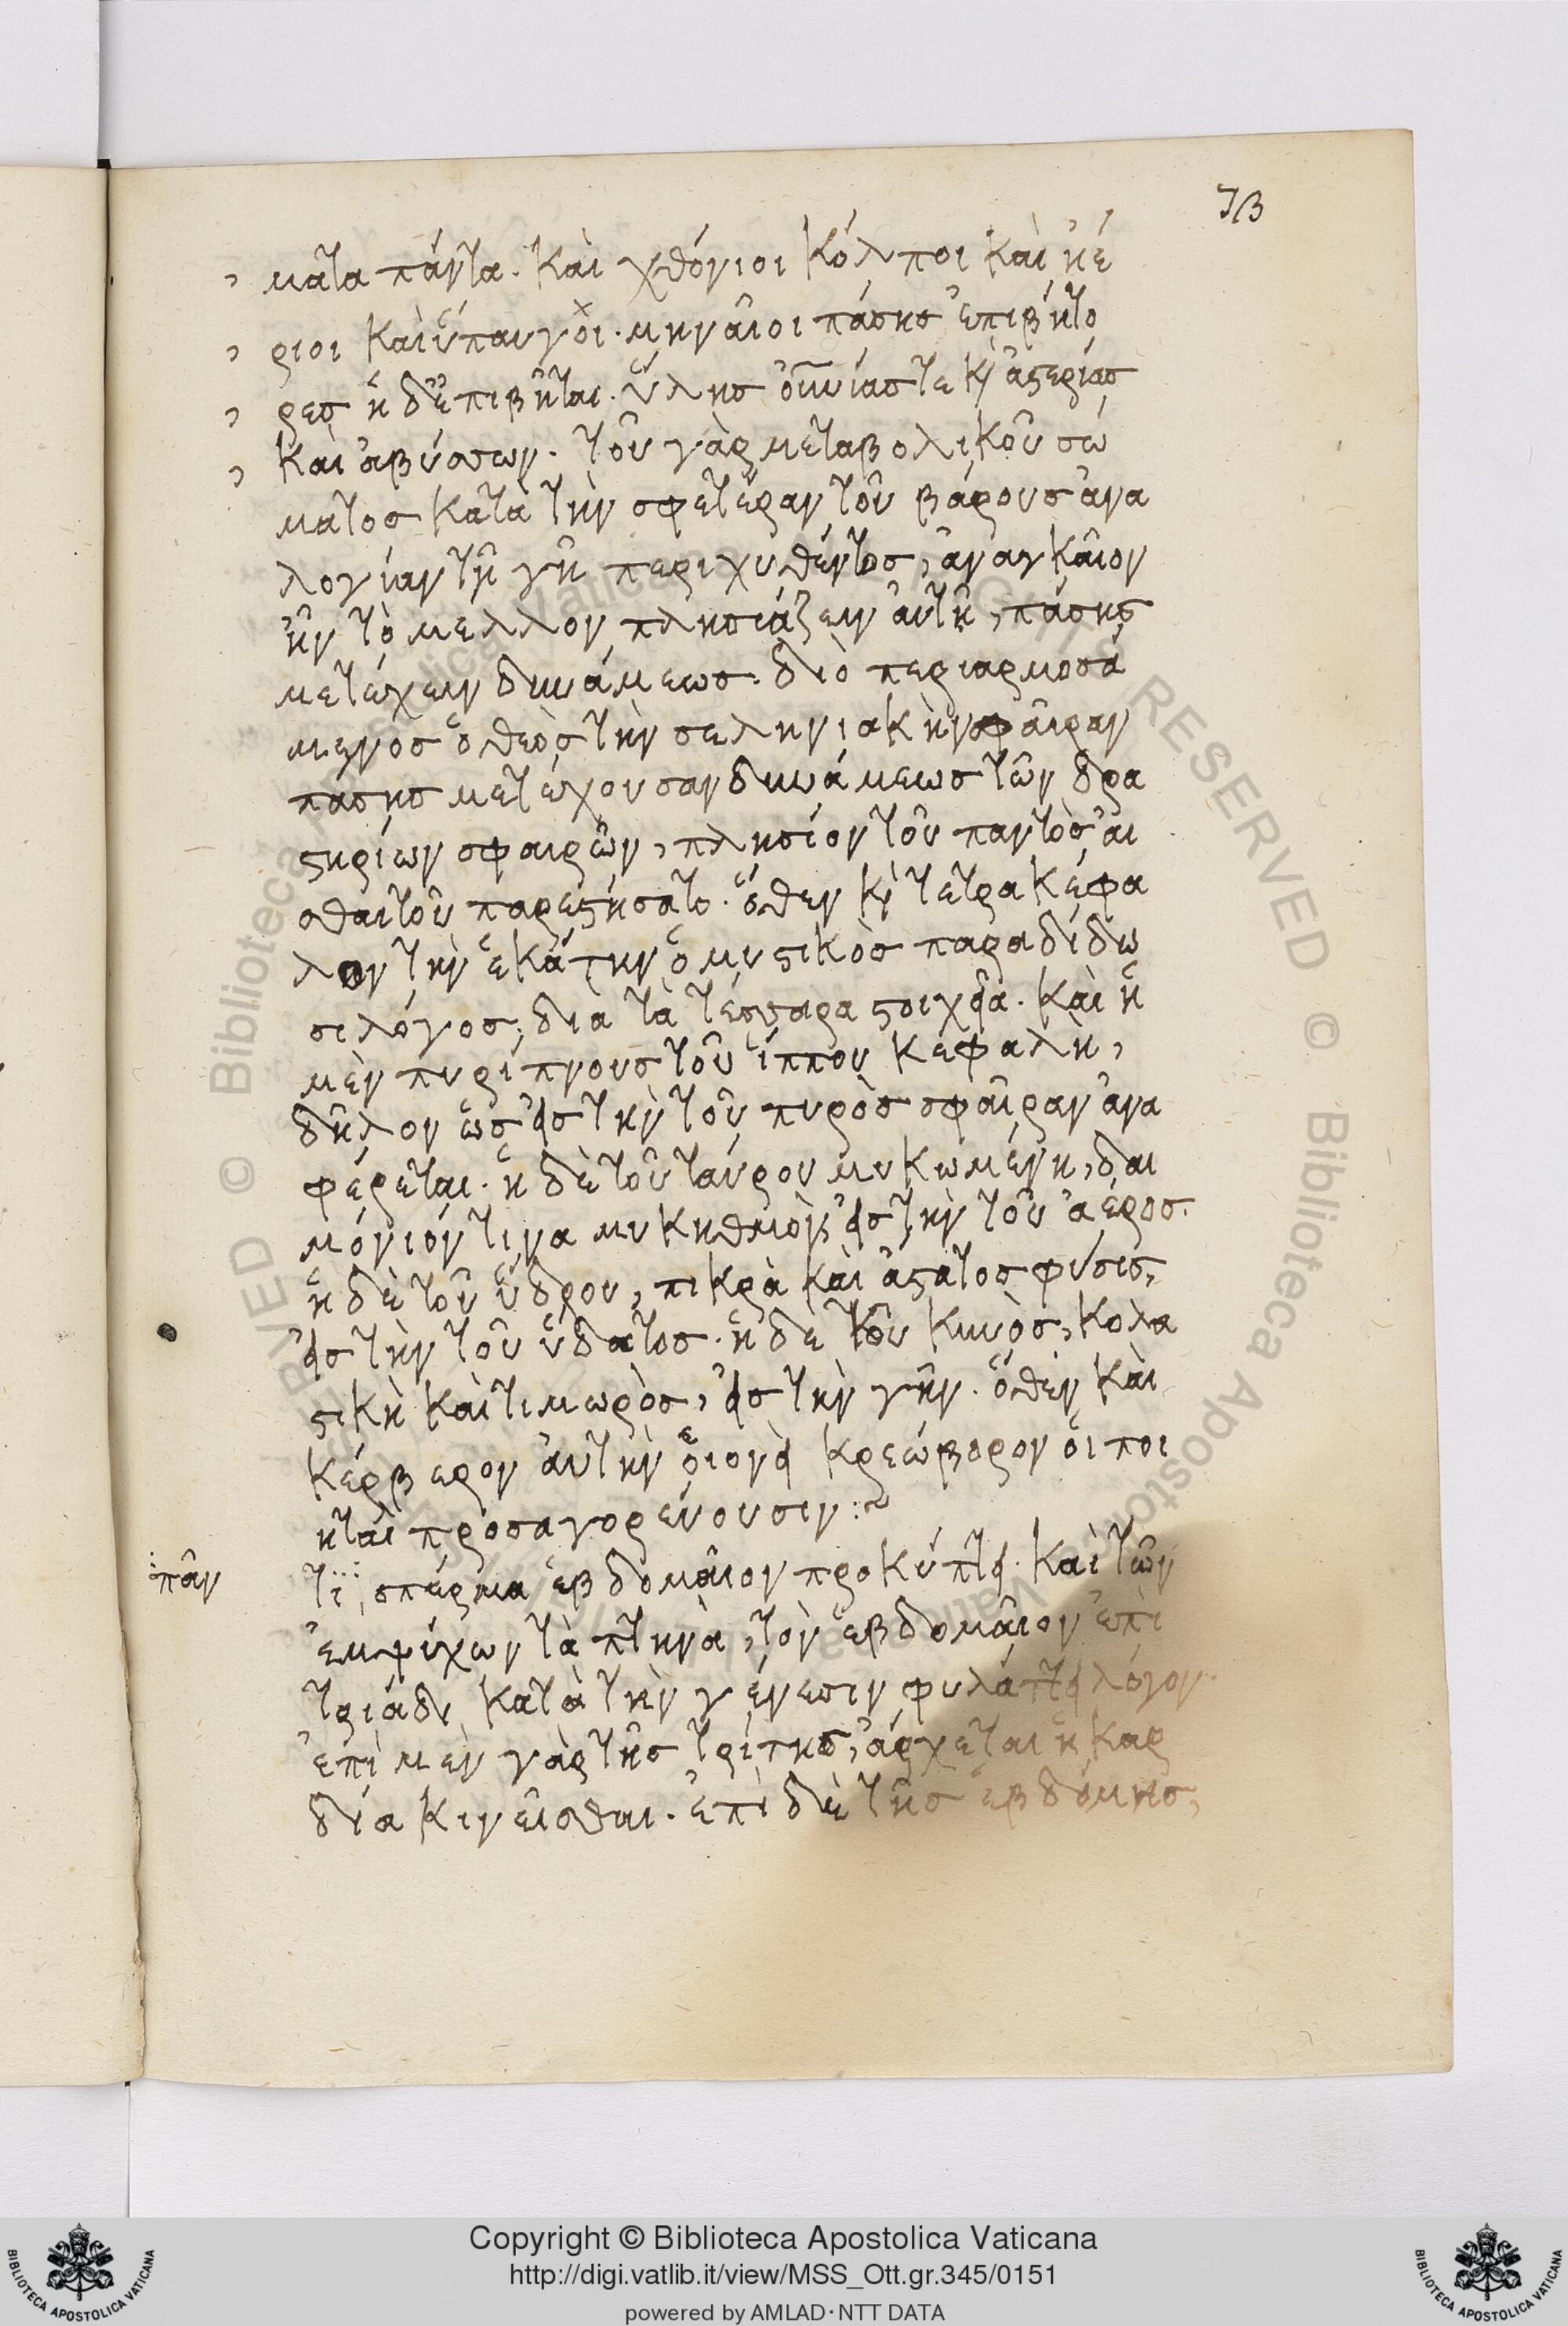 73
ματα πάντα. καὶ χθόνιοι κόλποι καὶ ἠέ
ριοι καὶ ὕπαυγοι. μηναῖοι πάσης ἐπιβήτο
ρες ἠδ' ἐπιβῆται. ὕλης οὐνίας τε κὶ ἀστερίας
καὶ ἀβύσσων. τοῦ γὰρ μεταβολικοῦ σώ
ματος κατὰ τὴν σφετέραν τοῦ βάρους ἀνα
λογίαν τῇ γῇ περιχυθέντος, ἀναγκαῖον
ἦν τὸ μέλλον πλησιάζειν αὐτῇ, πάσης
μετέχειν δυνάμεως. διὸ περιαρμοσά
μενος ὁ θεὸς τὴν σεληνιακὴν σφαῖραν
πασης μετέχουσαν δυνάμεως τῶν δρα
στηρίων σφαιρῶν, πλησίον τοῦ παντὸς αἰ
σθητοῦ παρεστήσατο. ὅθεν κὶ τετρακέφα
λον τὴν ἑκάτην ὁ μυστικὸς παραδίδω
σι λόγος, διὰ τὰ τέσσαρα στοιχεῖα. καὶ ἡ
μὲν πυρίπνους τοῦ ἵππου κεφαλὴ,
δῆλον ὡς εἰς τὴν τοῦ πυρὸς σφαῖραν ἀνα
φέρεται. ἡ δὲ τοῦ ταύρου μυκωμένη, δαι
μόνιόν τινα μυκηθμὸν, εἰς τὴν τοῦ ἀέρος.
ἡ δὲ τοῦ ὕδρου, πικρὰ καὶ ἄστατος φύσις,
εἰς τὴν τοῦ ὕδατος. ἡ δὲ τοῦ κυνὸς, κολα
στικὴ καὶ τιμωρὸς, εἰς τὴν γῆν. ὅθεν καὶ
κέρβερον αὐτὴν οἱονεὶ κρεώβορον οἱ ποι
ηταὶ προσαγορεύουσιν:~
πᾶν
τι, σπέρμα ἑβδομαῖον προκύπτει. καὶ τῶν
ἐμψύχων τὰ πτηνὰ, τὸν ἑβδομαῖον ἐπὶ
τριάδι κατὰ τὴν γένεσιν φυλάττει λόγον.
ἐπὶ μὲν γὰρ τῆς τρίτης, ἄρχεται ἡ καρ
δία κινεῖσθαι. ἐπὶ δὲ τῆς ἑβδόμης,
© Biblioteca Apostolica Vaticana
RIGHTS RESERVED
Copyright © Biblioteca Apostolica Vaticana
http://digi.vatlib.it/view/MSS_Ott.gr.345/0151
powered by AMLAD·NTT DATA
BIBLIOTECA APOSTOLICA VATICANA
BIBLIOTECA APOSTOLICA VATICANA